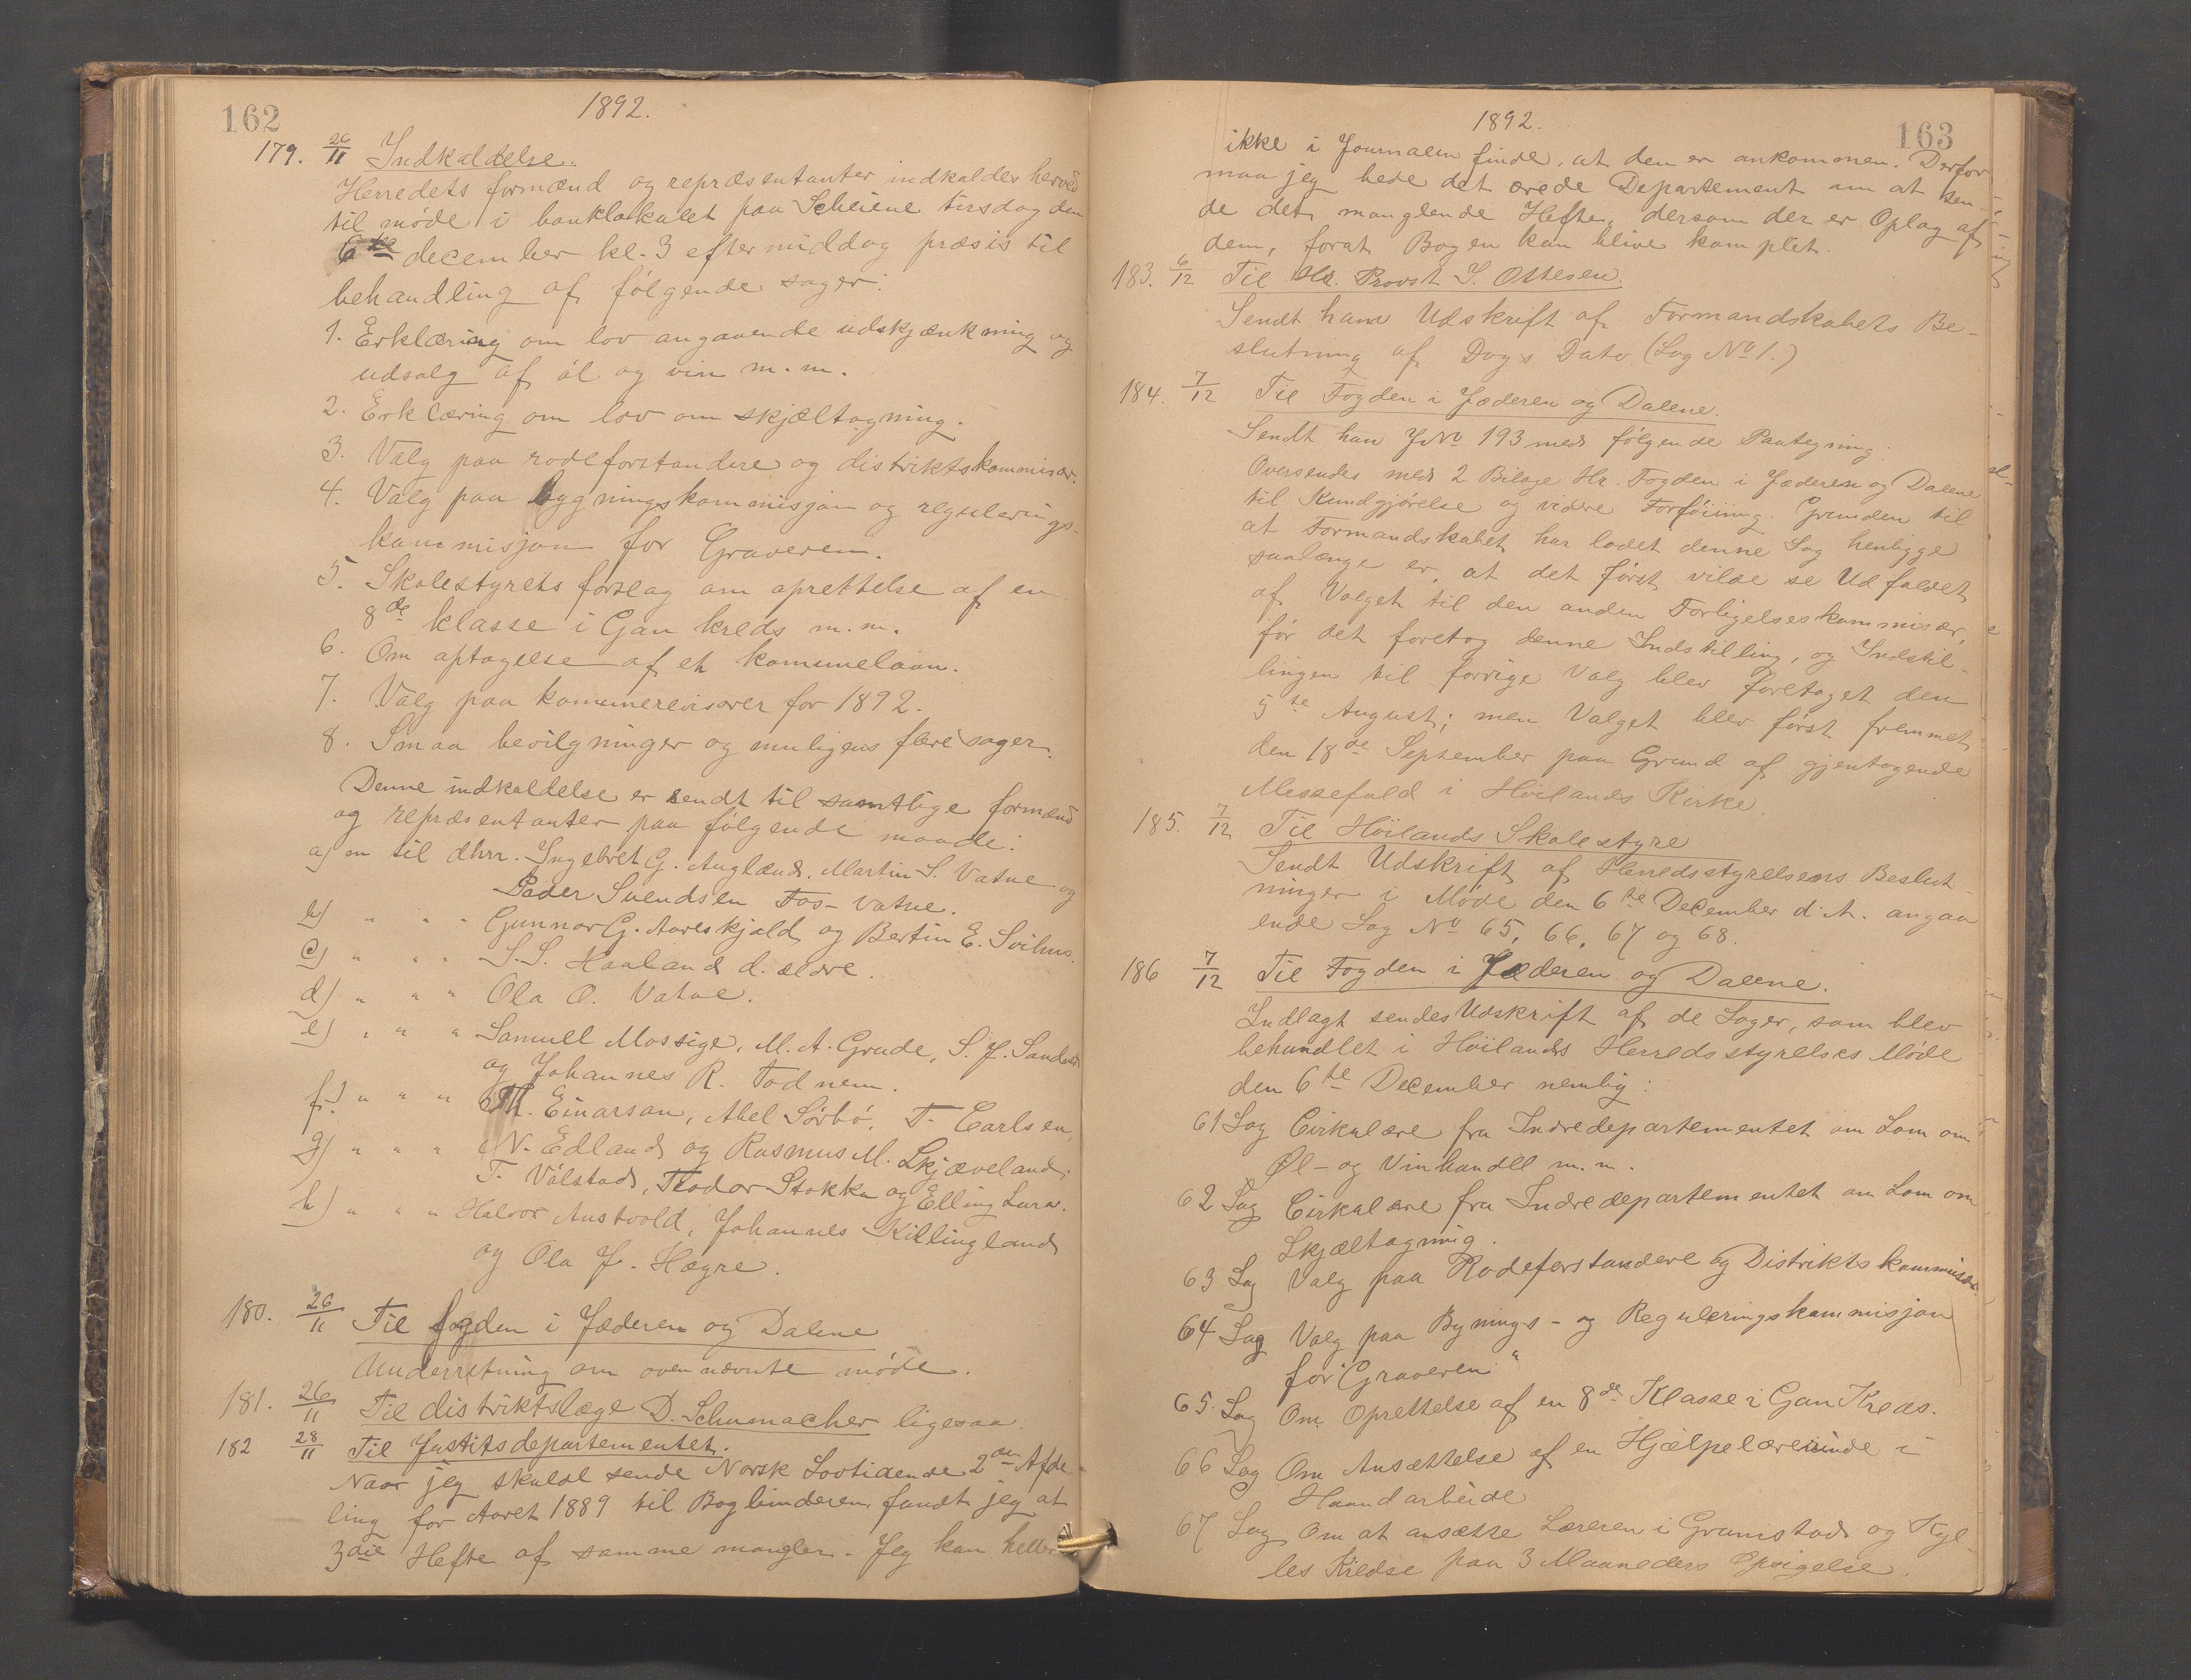 162
1892.
179. 26/11 Indkaldelse.
Herredets formænd og repræsentanter indkaldes herved
til møde i banklokalet paa Scheiene tirsdag den
6te december kl. 3 eftermiddag præsis til
behandling af følgende sager:
1. Erklæring om lov angaaende udskjænkning og
udsalg af øl og vin m.m.
2. Erklæring om lov om skjæltagning.
3. Valg paa rodeforstandere og distriktskommisær.
4. Valg paa bygningskommisjon og regulerings-
kommisjon for Graveren.
5. Skolestyrets forslag om oprettelse af en
8de klasse i Gan kreds m.m.
6. Om optagelse af et kommunelaan.
7. Valg paa kommunerevisorer for 1892.
8. Smaa bevilgninger og muligens flere sager.
Denne indkaldelse er sendt til samtlige formænd
og repræsentanter paa følgende maade:
a) en til dhrr. Ingebret G. Auglænd, Martin S. Vatne og
Peder Svendsen Fos-Vatne.
b) " " " Gunnar G. Aareskjold og Bertin E. Svihus.
c) " " " S. S. Haaland d. ældre.
d) " " " Ola O. Vatne.
e) " " " Samuel Mossige, M. A. Grude, S. J. Sandvid
og Johannes R. Todnem.
f) " " " Th. Einarson, Abel Sørbø, T. Carlsen,
g) " " " N. Edland og Rasmus M. Skjæveland.
T. Vølstad, Teodor Stokka og Elling Lura.
h) " " " Halvor Austvold, Johannes Killingland
og Ola J. Hogre.
180. 26/11 Til fogden i Jæderen og Dalene
Underretning om ovennævnte møde.
181. 26/11 Til distriktslæge D. Schumacher ligesaa.
182 28/11 Til Justitsdepartementet.
Naar jeg skulde sende Norsk Lovtidende 2den Afde-
ling for Aaret 1889 til Bogbinderen, fandt jeg at
3die Hefte af samme mangler. Jeg kan heller
163
1892.
ikke i Journalen finde, at den er ankommen. Derfor
maa jeg bede det ærede Departement om at sen-
de det manglende Hefte, dersom der er Oplag af
dem, forat Bogen kan blive komplet.
183. 6/12 Til Hr. Provst S. Ottesen.
Sendt ham Udskrift af Formandskabets Be-
slutning af Dags Dato (Sag No 1.)
184. 7/12 Til Fogden i Jæderen og Dalene.
Sendt ham JNo 193 med følgende Paategning:
Oversendes med 2 Bilage Hr. Fogden i Jæderen og Dalene
til Kundgjørelse og videre Forføining. Grunden til
at Formandskabet har ladet denne Sag henligge
saalænge er, at det først vilde se Udfaldet
af Valget til den anden Forligelseskommisær,
før det foretog denne Indstilling, og Indstil-
lingen til forrige Valg blev foretaget den
5te August; men Valget blev først fremmet
den 18de September paa Grund af gjentagende
Messefald i Høilands Kirke.
185. 7/12 Til Høilands Skolestyre
Sendt Udskrift af Herredsstyrelsens Beslut-
ninger i Møde den 6te December d. A. angaa
ende Sag No 65, 66, 67 og 68.
186 7/12 Til Fogden i Jæderen og Dalene.
Indlagt sendes Udskrift af de Sager, som blev
behandlet i Høilands Herredsstyrelses Møde
den 6te December nemlig:
61 Sag Cirkulære fra Indredepartementet om Lom om
Øl- og Vinhandel m.m.
62 Sag Cirkulære fra Indredepartementet om Lom om
Skjæltagning.
63 Sag Valg paa Rodeforstandere og Distriktskommisær.
64 Sag Valg paa Bynings- og Reguleringskommisjon
for "Graveren"
65. Sag Om Oprettelse af en 8de Klasse i Gan Kreds.
66 Sag Om Ansættelse af en Hjælpelærerinde i
Haandarbeide
67 Sag Om at ansætte Læreren i Gramstad og Kyl-
les Kredse paa 3 Maaneders Opsigelse.